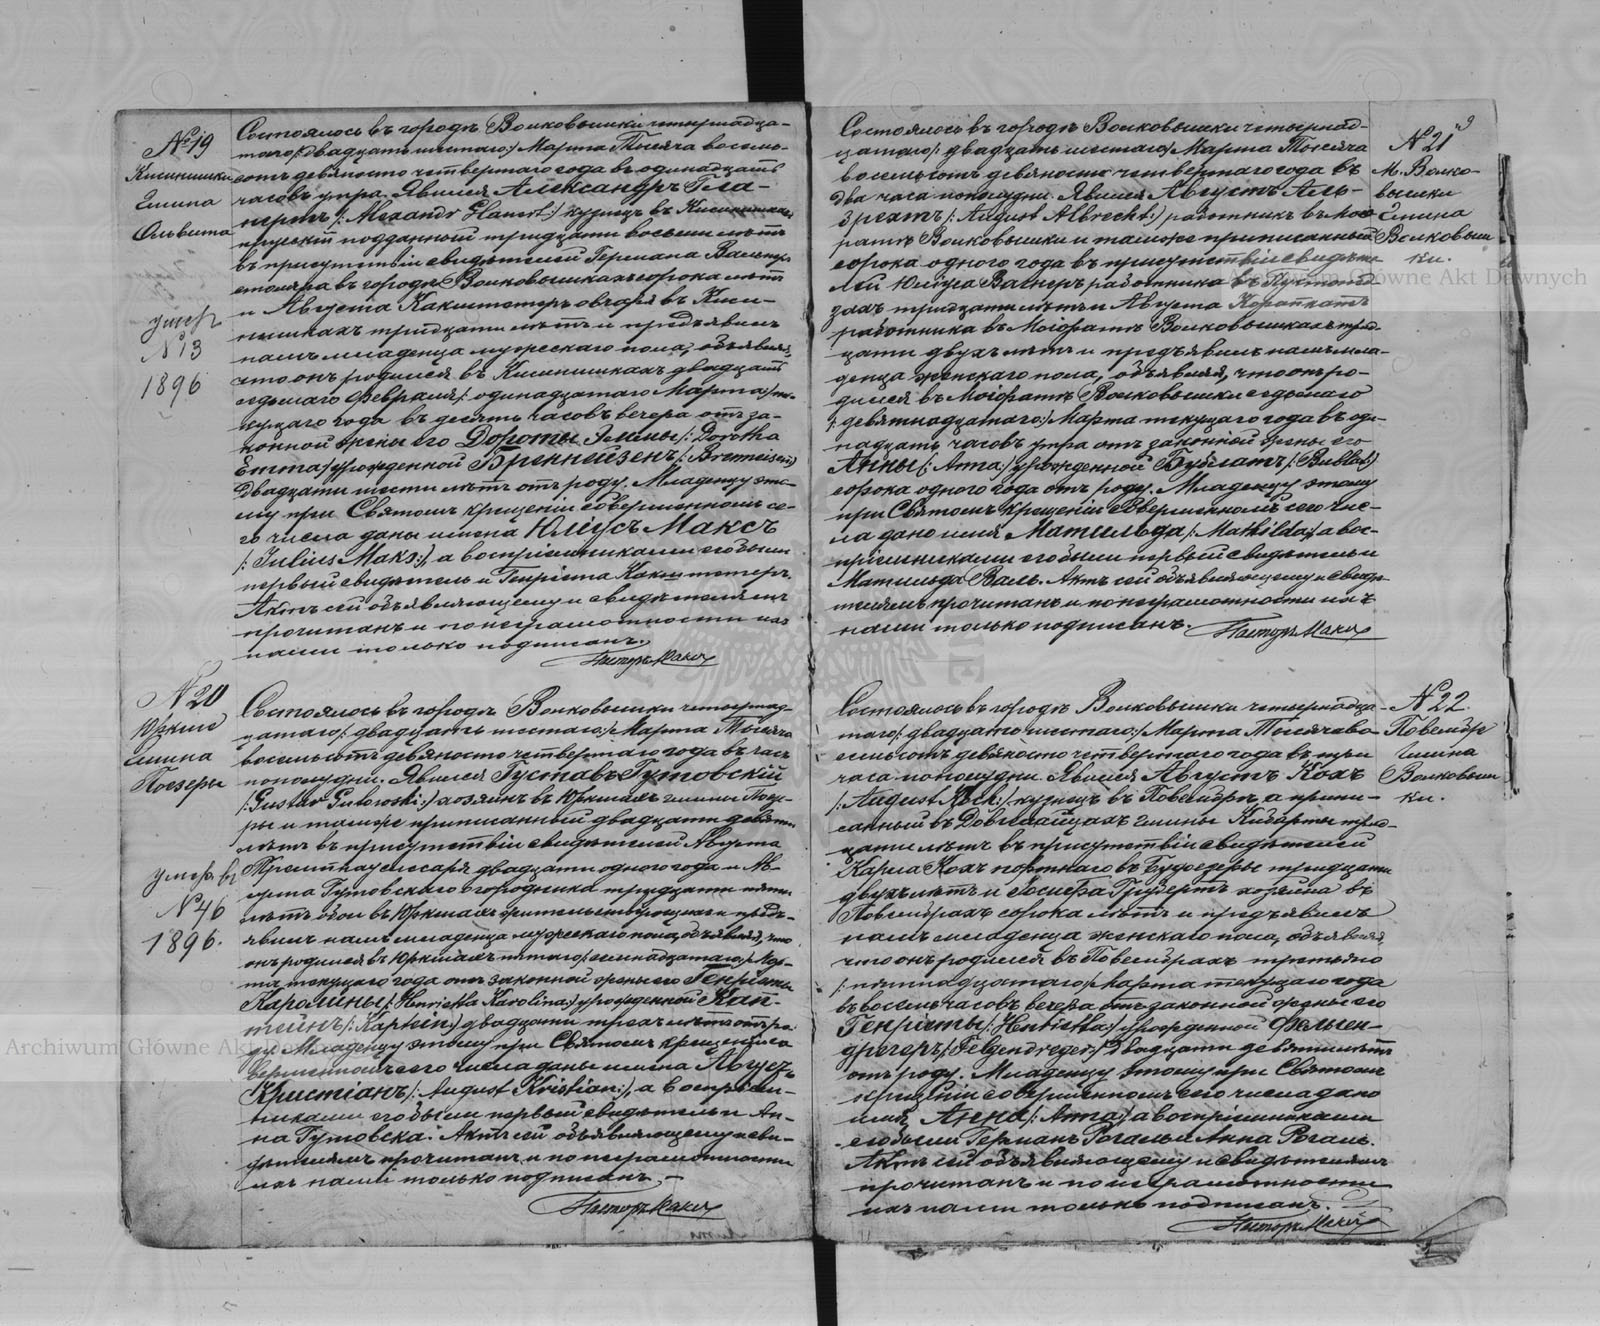 № 19
Кисинишки
Гмина
Ольвита
умер
№ 13
1896
Состоялось въ городѣ Волковышки четырнадца-
таго /: двадцать шестаго :/ Марта Тысяча восемь-
сотъ девяносто четвертаго года въ одинадцать
часовъ утра. Явился Александръ Гла-
нертъ /: Alexandr Glanert :/ кузнецъ въ
прусскій подданный тридцати восьми лѣтъ
въ присутствіи свидѣтелей Германа
столяра въ городѣ Волковышкахъ сорока лѣтъ
и Августа Какшттетеръ овчаря въ Киси-
нишкахъ тридцати лѣтъ и предъявилъ
намъ младенца мужескаго пола, объявляя,
что онъ родился въ Кисинишкахъ двадцать
седьмаго Февраля /: одинадцатаго Марта :/ те-
кущаго года въ десять часовъ вечера отъ за-
конной жены его Дороты Эммы /: Dorothea
Emma :/ урожденной Бреннейзенъ /: Brenneisen :/
двадцати шести лѣтъ отъ роду. Младенцу это-
му при Святомъ крещеніи совершенномъ се-
го числа даны имена Юлiусъ Максъ
/: Julius Maks :/, а воспріемниками его были
первый свидѣтель и Генріета Какшттетеръ.
Актъ сей объявляющему и свидѣтелямъ
прочитанъ и по неграмотности ихъ
нами только подписанъ.
Пасторъ
№ 20
Юркше
Гмина
Поезеры
умеръ
№ 46
1896.
Состоялось въ городѣ Волковышки четырнад-
цатаго /: двадцать шестаго :/ Марта Тысяча
восемьсотъ девяносто четвертаго года въ часъ
пополудни. Явился Густавъ Гутовскій
/: Gustav Gutowski :/ хозяинъ въ Юркшахъ гмины Поезе-
ры и тамже приписанный двадцати девяти
лѣтъ въ присутствіи свидѣтелей Августа
слесаря двадцати одного года и Ав-
густа Гутовскаго огородника тридцати пяти
лѣтъ обои въ Юркшахъ жительствующихъ и предъ-
явилъ намъ младенца мужескаго пола, объявляя, что
онъ родился въ Юркшахъ пятаго /: семнадцатаго :/ Мар-
та текущаго года отъ законной жены его Генріеты
Каролины /: Henrietta Karolina :/ урожденной Кап-
тейнъ /: Kaptein :/ двадцати трехъ лѣтъ отъ ро-
ду. Младенцу этому при Святомъ крещеніи со-
вершенномъ сего числа даны имена Августъ
Христіанъ /: August Kristian :/, а воспріем-
никами его были первый свидѣтель и Ан-
на Гутовска. Актъ сей объявляющему и сви-
дѣтелямъ прочитанъ и по неграмотности
ихъ нами только подписанъ.
Пасторъ
№ 21
М. Волко-
вышки
Гмина
Волковыш
ки.
Состоялось въ городѣ Волковышки четырнад-
цатаго /: двадцать шестаго :/ Марта Тысяча
восемьсотъ девяносто четвертаго года въ
два часа пополудни. Явился Августъ Аль-
брехтъ /: August Albrecht :/ работникъ въ Маіо-
ратѣ Волковышки и тамже приписанный
сорока одного года въ присутствіи свидѣте-
лей Юлiуса Вагнеръ работника въ
тридцати лѣтъ и Августа
работника въ Маіоратѣ Волковышкахъ трид-
цати двухъ лѣтъ и предъявилъ намъ мла-
денца женскаго пола, объявляя, что онъ ро-
дился въ Маіоратѣ Волковышки седьмаго
/: девятнадцатаго :/ Марта текущаго года въ оди-
надцать часовъ утра отъ законной жены его
Анны /: Anna :/ урожденной Бублатъ /: Bublat :/
сорока одного года отъ роду. Младенцу этому
при Святомъ крещеніи совершенномъ сего чис-
ла дано имя Матильда /: Mathilda :/, а вос-
пріемниками его были первый свидѣтель и
Матильда Валь. Актъ сей объявляющему и свидѣ-
телямъ прочитанъ и по неграмотности ихъ
нами только подписанъ.
Пасторъ
№ 22.
Повембре
Гмина
Волковыш
ки.
Состоялось въ городѣ Волковышки четырнадца-
таго /: двадцать шестаго :/ Марта Тысяча во-
семьсотъ девяносто четвертаго года въ три
часа пополудни. Явился Августъ Кохъ
/: August Koch :/ кузнецъ въ Повембрѣ, а припи-
санный въ гмины Кибарты трид-
цати лѣтъ въ присутствіи свидѣтелей
Карла Кохъ портнаго въ Будвезеры тридцати
двухъ лѣтъ и Іосифа Грубертъ хозяина въ
Повембрахъ сорока лѣтъ и предъявилъ
намъ младенца женскаго пола, объявляя,
что онъ родился въ Повембрахъ третьяго
/: пятнадцатаго :/ Марта текущаго года
въ восемь часовъ вечера отъ законной жены его
Генріеты /: Henrietta :/ урожденной Фельген-
дрегеръ /: Felgendreger :/ двадцати девяти лѣтъ
отъ роду. Младенцу этому при Святомъ
крещеніи совершенномъ сего числа дано
имя Анна /: Anna :/ а воспріемниками
его были Германъ Рогаль и Анна Рогаль.
Актъ сей объявляющему и свидѣтелямъ
прочитанъ и по неграмотности
ихъ нами только подписанъ.
Пасторъ
Archiwum Główne Akt Dawnych
Archiwum Główne Akt Dawnych